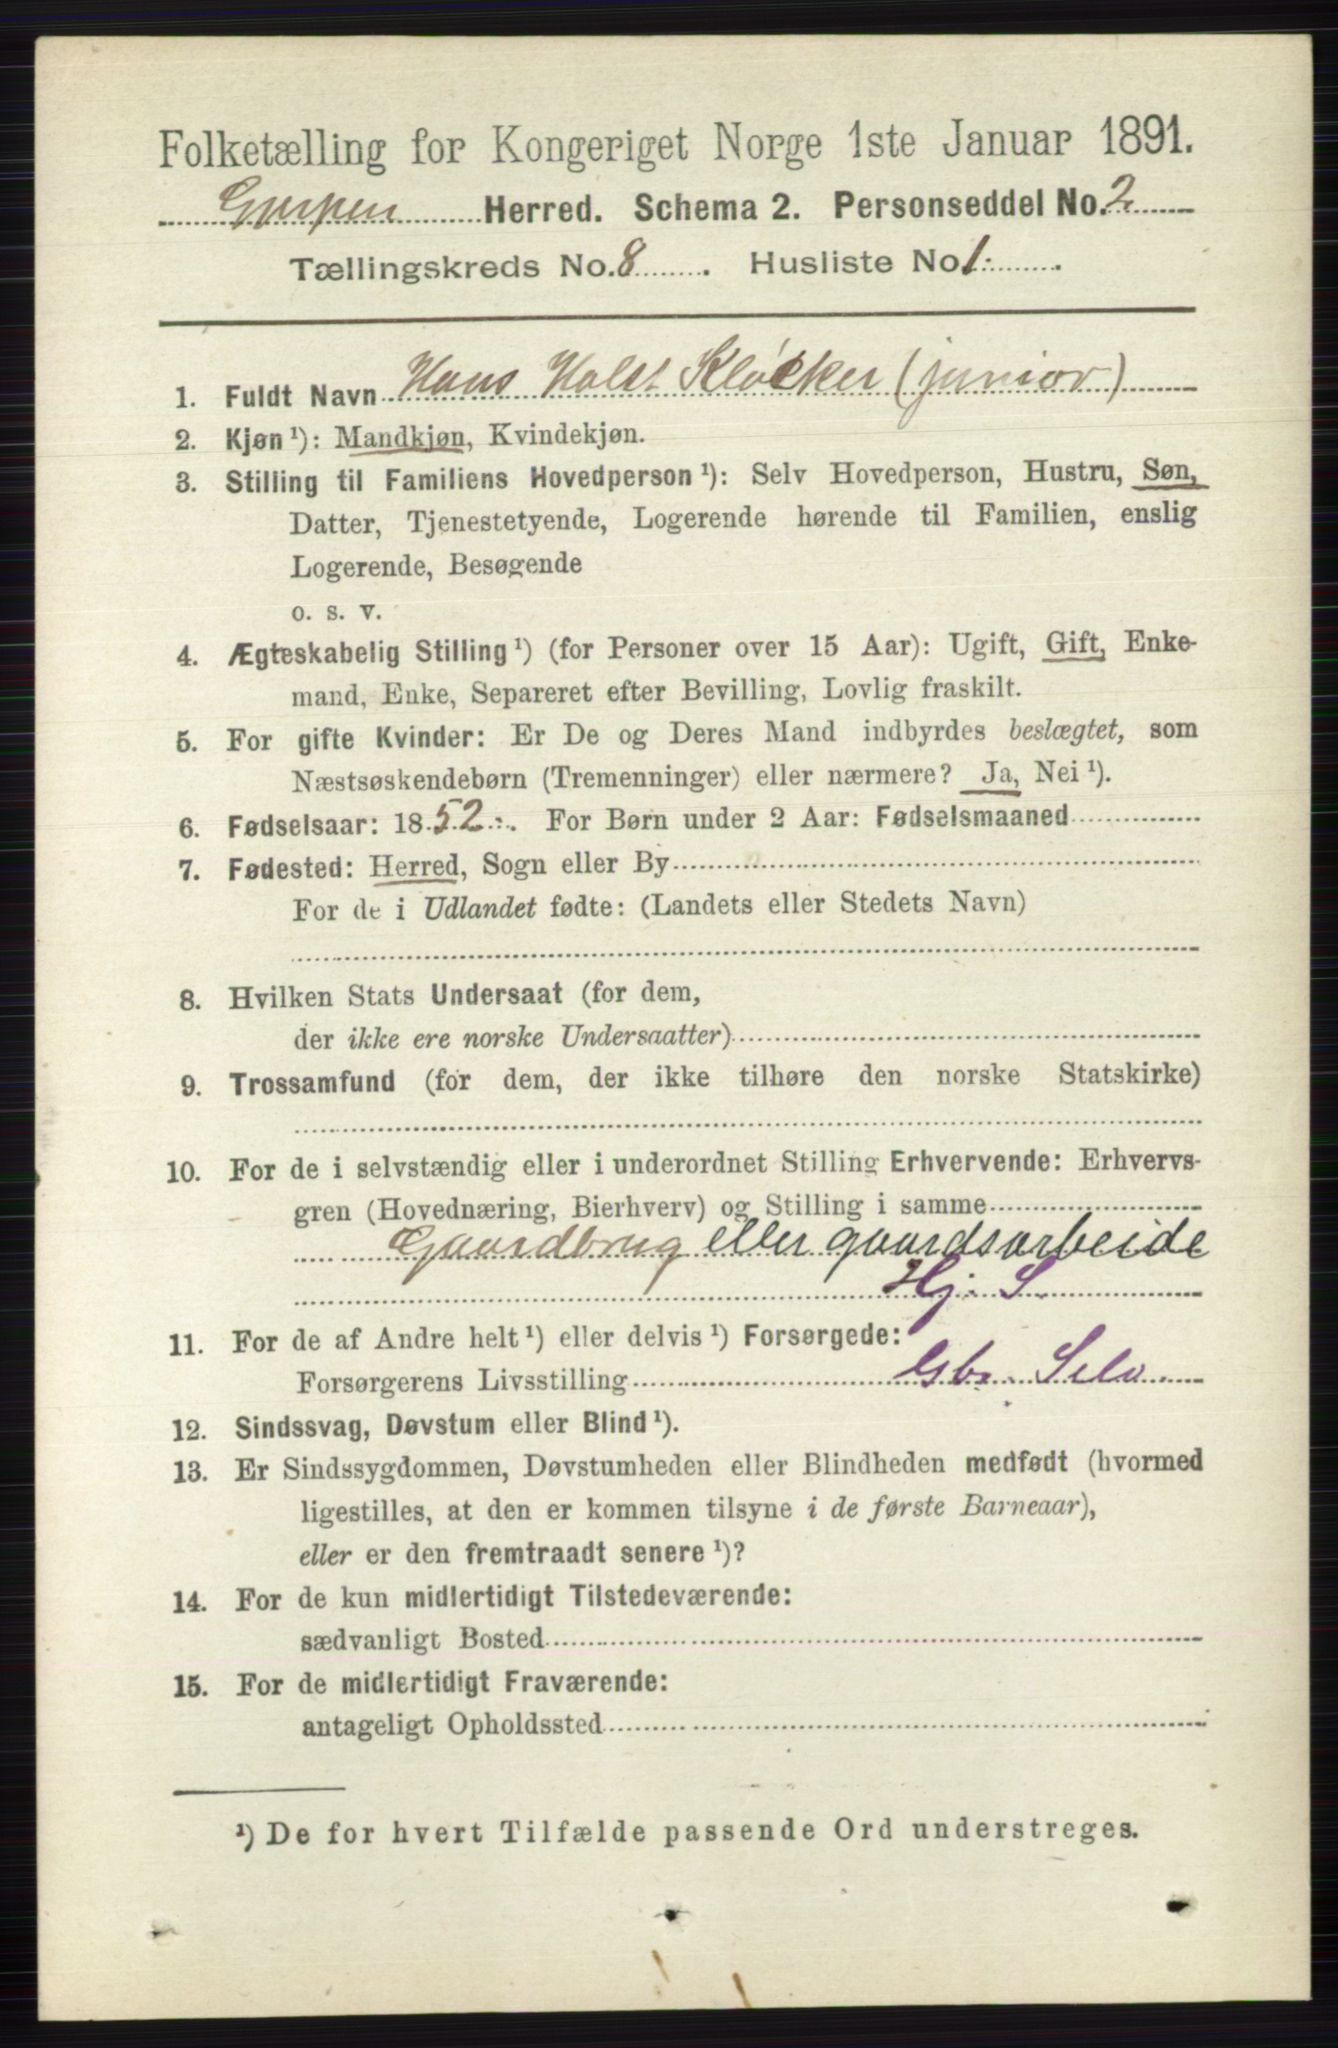 Folketælling for Kongeriget Norge 1ste Januar 1891.
Gjerpen Herred. Schema 2. Personseddel No. 2
Tællingskreds No. 8. Husliste No. 1.
1. Fuldt Navn Hans Holst Kløcker (junior)
2. Kjøn ¹): Mandkjøn, Kvindekjøn.
3. Stilling til Familiens Hovedperson ¹): Selv Hovedperson, Hustru, Søn,
Datter, Tjenestetyende, Logerende hørende til Familien, enslig
Logerende, Besøgende
o. s. v.
4. Ægteskabelig Stilling ¹) (for Personer over 15 Aar): Ugift, Gift, Enke-
mand, Enke, Separeret efter Bevilling, Lovlig fraskilt.
5. For gifte Kvinder: Er De og Deres Mand indbyrdes beslægtet, som
Næstsøskendebørn (Tremenninger) eller nærmere? Ja, Nei ¹).
6. Fødselsaar: 1852. For Børn under 2 Aar: Fødselsmaaned
7. Fødested: Herred, Sogn eller By
For de i Udlandet fødte: (Landets eller Stedets Navn)
8. Hvilken Stats Undersaat (for dem,
der ikke ere norske Undersaatter)
9. Trossamfund (for dem, der ikke tilhøre den norske Statskirke)
10. For de i selvstændig eller i underordnet Stilling Erhvervende: Erhvervs-
gren (Hovednæring, Bierhverv) og Stilling i samme
Gaardbrug eller gaardsarbeide
Hj. S.
11. For de af Andre helt ¹) eller delvis ¹) Forsørgede:
Forsørgerens Livsstilling Gbr. Selv.
12. Sindssvag, Døvstum eller Blind ¹).
13. Er Sindssygdommen, Døvstumheden eller Blindheden medfødt (hvormed
ligestilles, at den er kommen tilsyne i de første Barneaar),
eller er den fremtraadt senere ¹)?
14. For de kun midlertidigt Tilstedeværende:
sædvanligt Bosted
15. For de midlertidigt Fraværende:
antageligt Opholdssted
¹) De for hvert Tilfælde passende Ord understreges.